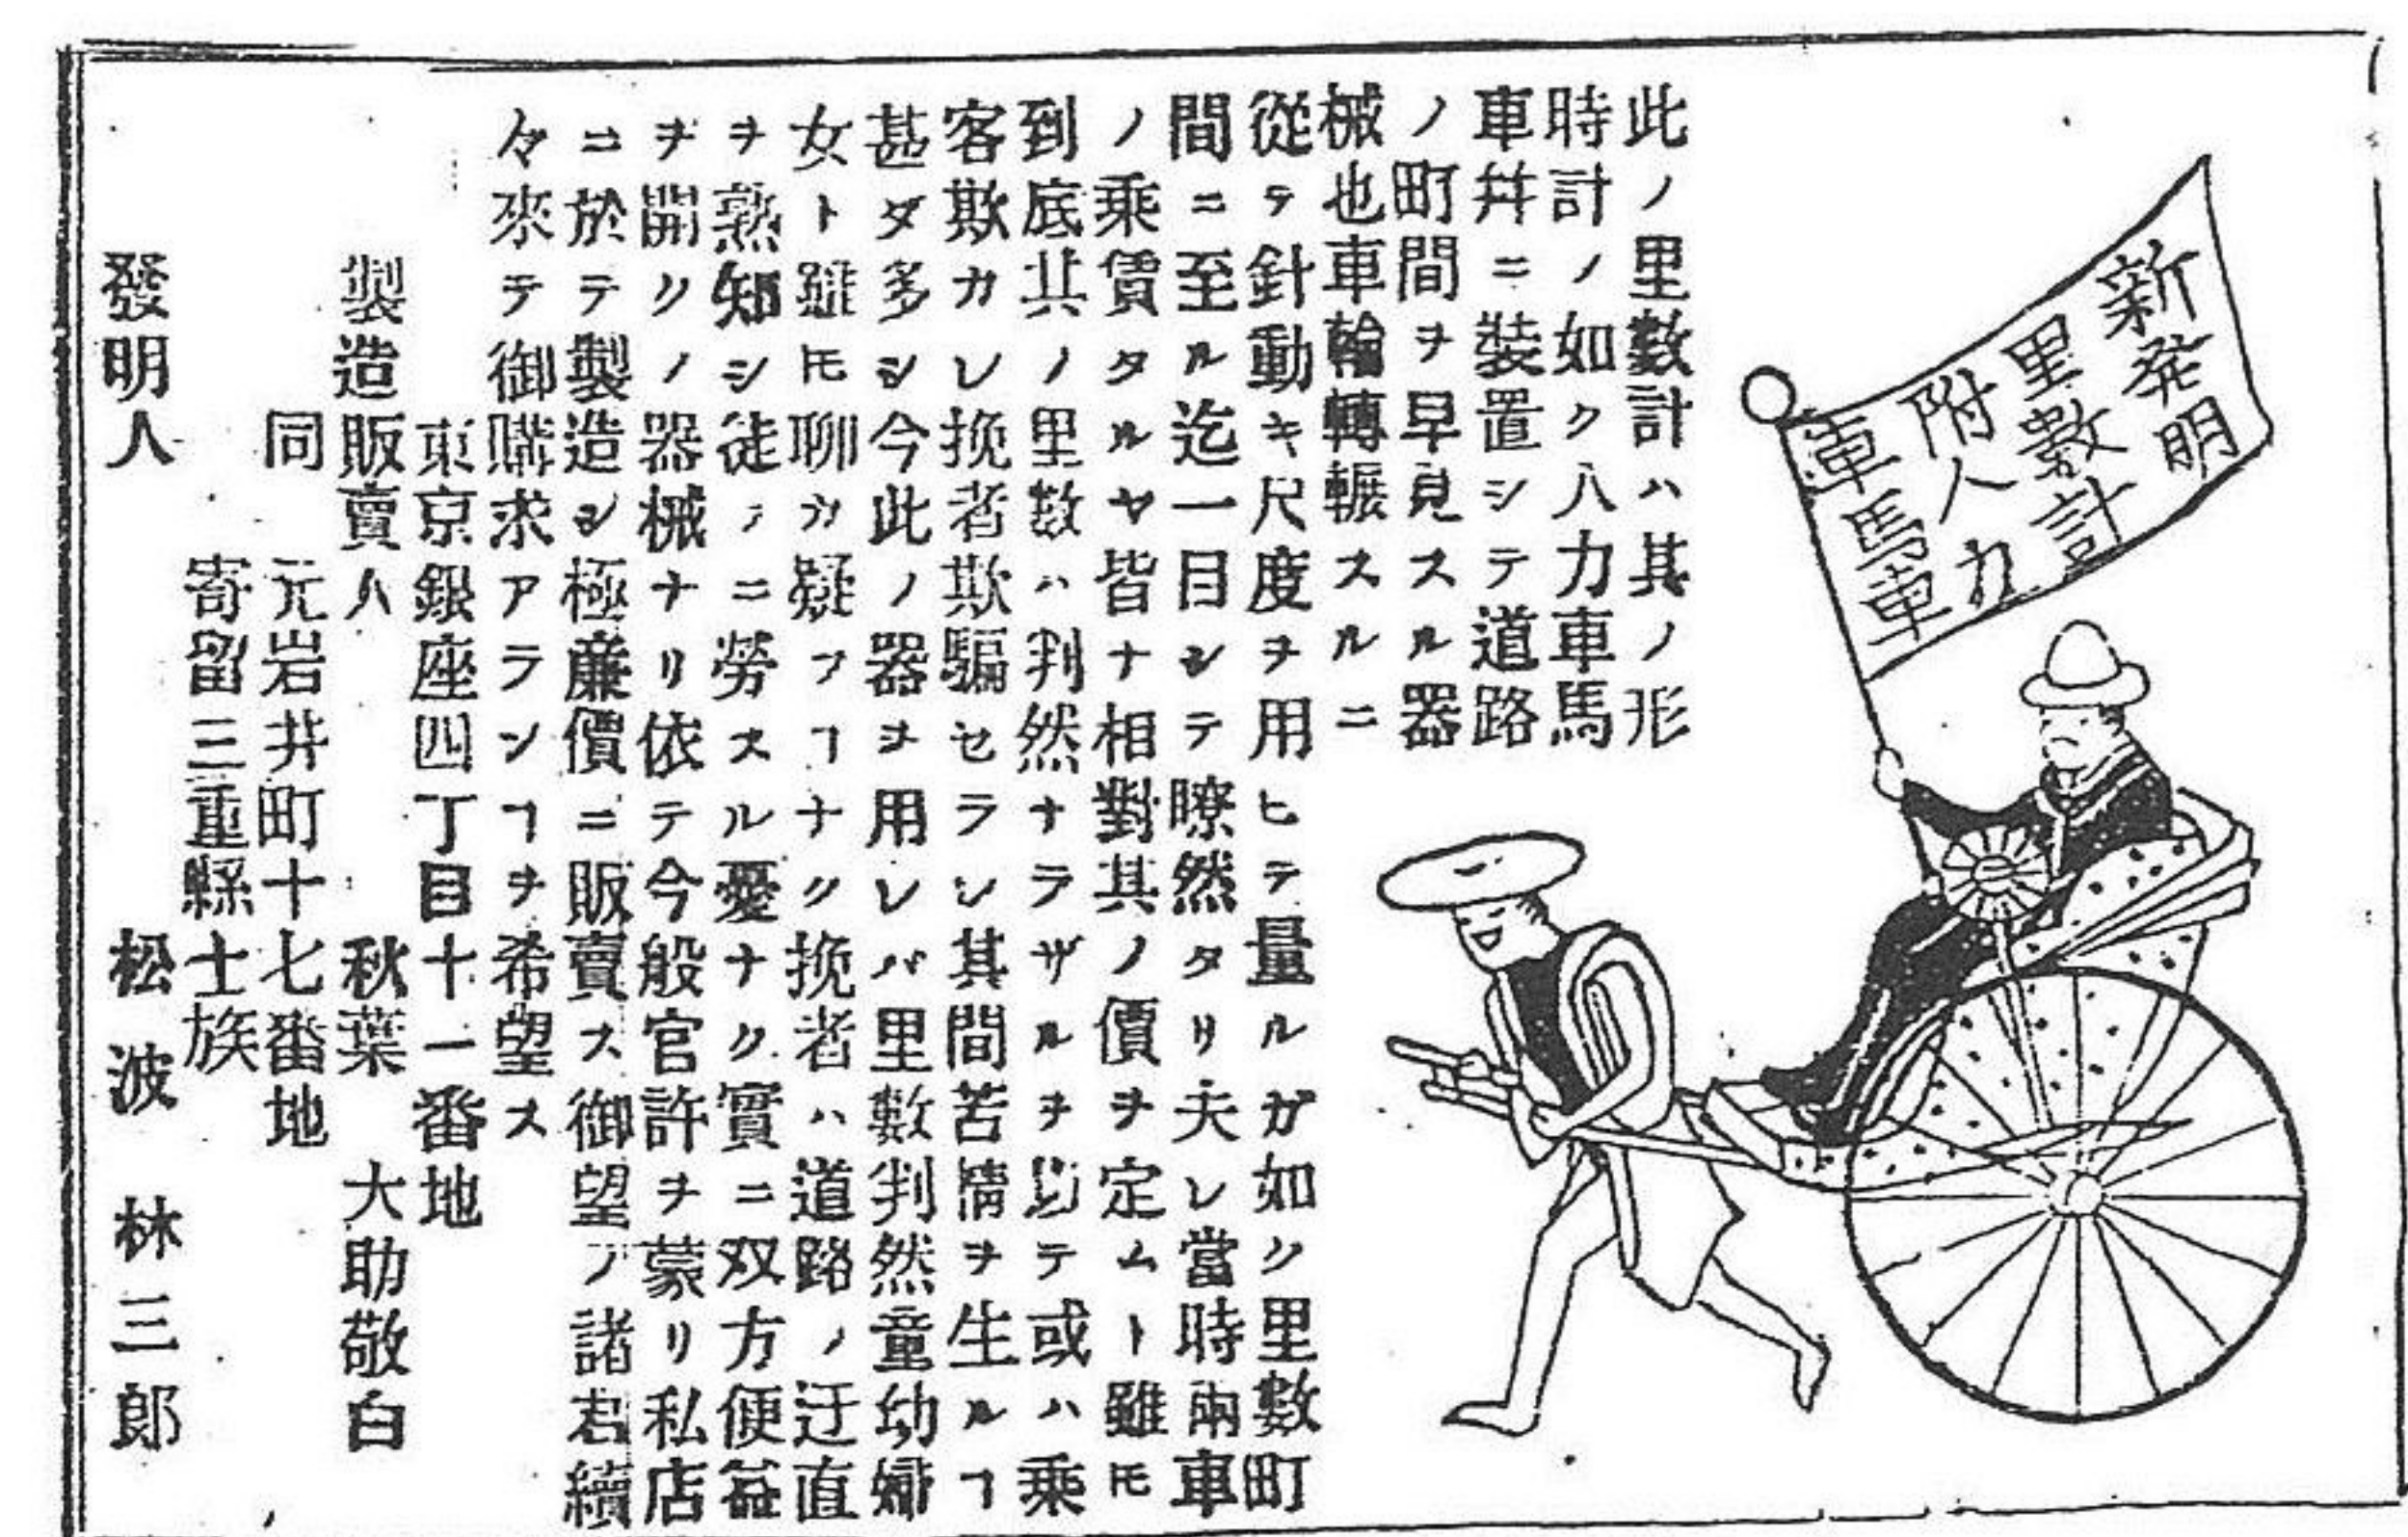 新発明
里數計
附人力
車馬車
此ノ里數計ハ其ノ形
時計ノ如ク人力車馬
車幷ニ裝置シテ道路
ノ町間ヲ早見スル器
械也車輪轉輾スルニ
從テ針動キ尺度ヲ用ヒテ量ルガ如ク里數町
間ニ至ル迄一目シテ瞭然タリ夫レ當時兩車
ノ乘賃タルヤ皆ナ相對其ノ價ヲ定ムト雖モ
到底其ノ里数ハ判然ナラザルヲ以テ或ハ乘
客欺カレ挽者欺騙セラレ其間苦情ヲ生ルヿ
甚ダ多シ今此ノ器ヲ用レバ里數判然童幼婦
女ト雖モ聊カ疑フヿナク挽者ハ道路ノ迂直
ヲ熟知シ徒ラニ勞スル憂ナク實ニ双方便益
ヲ開クノ器械ナリ依テ今般官許ヲ蒙リ私店
ニ於テ製造シ極廉價ニ販賣ス御望ノ諸君續
々來テ御購求アランヿヲ希望ス
東京銀座四丁目十一番地
製造販賣人 秋葉 大助敬白
同 元岩井町十七番地
寄留三重縣士族
發明人 松波 林三郎